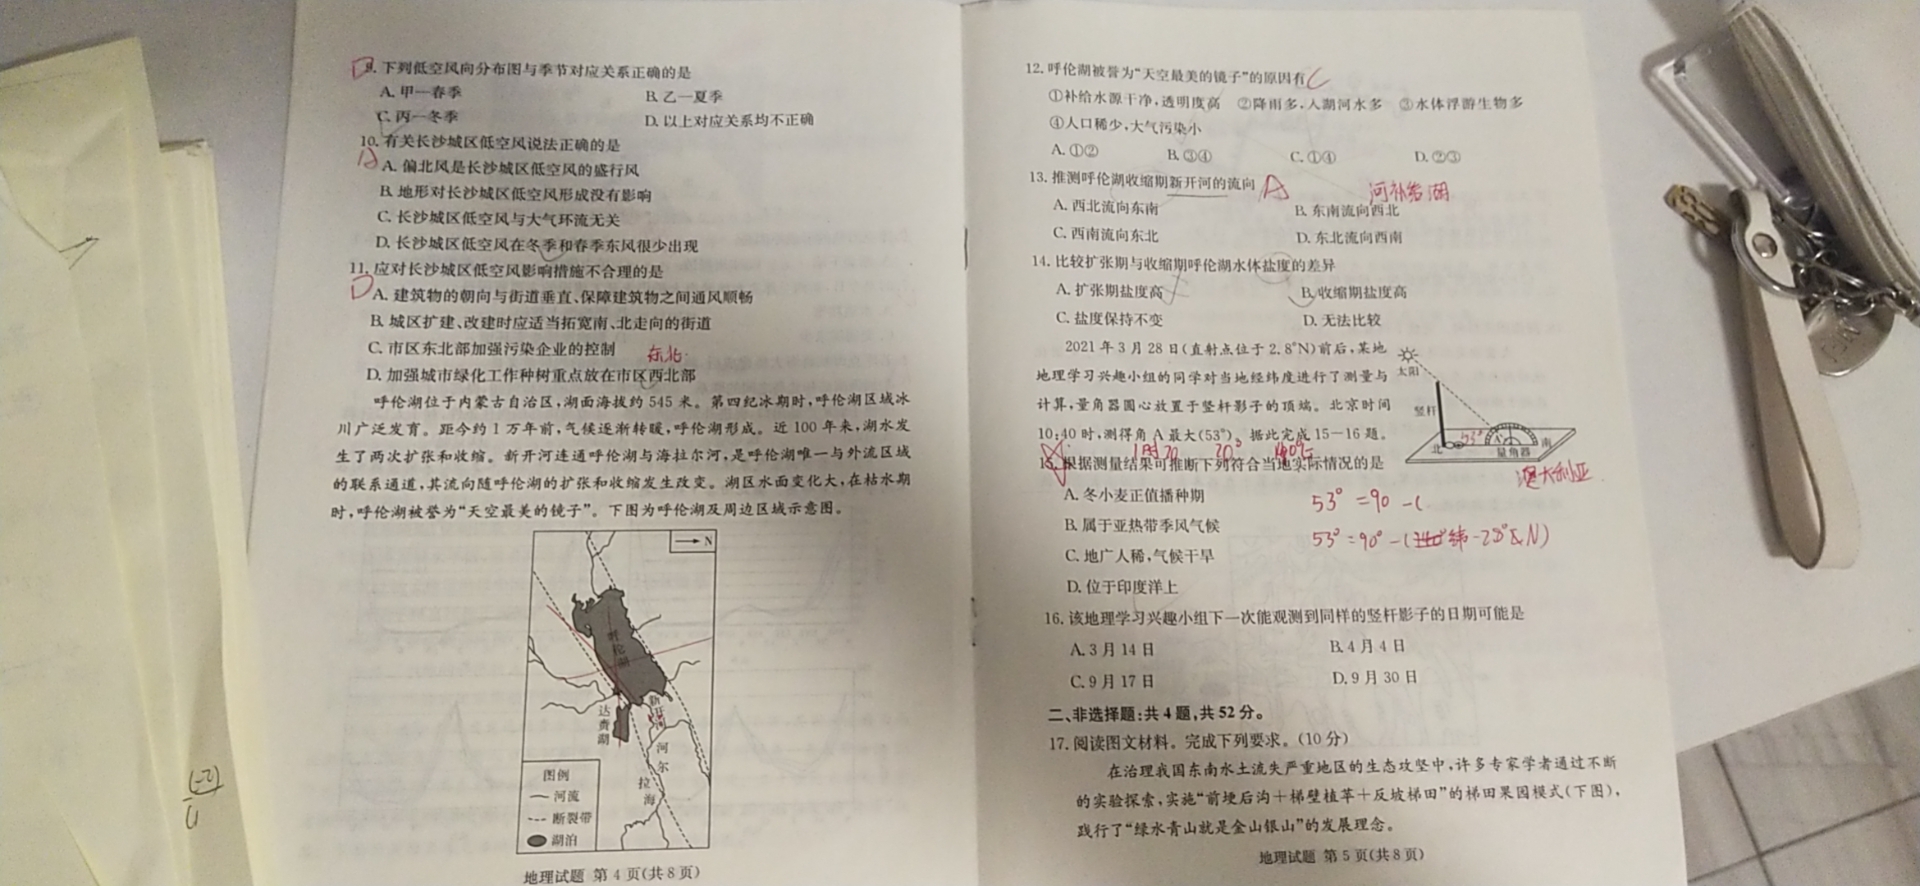 9. 下列低空风向分布图与季节对应关系正确的是
A. 甲—春季 B. 乙—夏季
C. 丙—冬季 D. 以上对应关系均不正确
10. 有关长沙城区低空风说法正确的是
A. 偏北风是长沙城区低空风的盛行风
B. 地形对长沙城区低空风形成没有影响
C. 长沙城区低空风与大气环流无关
D. 长沙城区低空风在冬季和春季东风很少出现
11. 应对长沙城区低空风影响措施不合理的是
D
A. 建筑物的朝向与街道垂直、保障建筑物之间通风顺畅
B. 城区扩建、改建时应适当拓宽南、北走向的街道
C. 市区东北部加强污染企业的控制
东北
D. 加强城市绿化工作种树重点放在市区西北部
呼伦湖位于内蒙古自治区,湖面海拔约 545 米。第四纪冰期时,呼伦湖区域冰
川广泛发育。距今约 1 万年前,气候逐渐转暖,呼伦湖形成。近 100 年来,湖水发
生了两次扩张和收缩。新开河连通呼伦湖与海拉尔河,是呼伦湖唯一与外流区域
的联系通道,其流向随呼伦湖的扩张和收缩发生改变。湖区水面变化大,在枯水期
时,呼伦湖被誉为“天空最美的镜子”。下图为呼伦湖及周边区域示意图。
N
呼伦湖
达赉湖
新开河
海拉尔河
图例
河流
断裂带
湖泊
地理试题 第 4 页(共 8 页)
12. 呼伦湖被誉为“天空最美的镜子”的原因有 C
①补给水源干净,透明度高 ②降雨多,入湖河水多 ③水体浮游生物多
④人口稀少,大气污染小
A. ①② B. ③④ C. ①④ D. ②③
13. 推测呼伦湖收缩期新开河的流向 A
河补给湖
A. 西北流向东南 B. 东南流向西北
C. 西南流向东北 D. 东北流向西南
14. 比较扩张期与收缩期呼伦湖水体盐度的差异
A. 扩张期盐度高 B. 收缩期盐度高
C. 盐度保持不变 D. 无法比较
2021 年 3 月 28 日(直射点位于 2.8°N)前后,某地
地理学习兴趣小组的同学对当地经纬度进行了测量与
计算,量角器圆心放置于竖杆影子的顶端。北京时间
10:40 时,测得角 A 最大(53°)。据此完成 15—16 题。
太阳
竖杆
53°
A
北
量角器
南
20°
澳大利亚
15. 根据测量结果可推断下列符合当地实际情况的是
A. 冬小麦正值播种期
53° = 90 - (
B. 属于亚热带季风气候
53° = 90° - (
C. 地广人稀,气候干旱
D. 位于印度洋上
16. 该地理学习兴趣小组下一次能观测到同样的竖杆影子的日期可能是
A. 3 月 14 日 B. 4 月 4 日
C. 9 月 17 日 D. 9 月 30 日
二、非选择题:共 4 题,共 52 分。
17. 阅读图文材料。完成下列要求。(10 分)
在治理我国东南水土流失严重地区的生态攻坚中,许多专家学者通过不断
的实验探索,实施“前埂后沟+梯壁植草+反坡梯田”的梯田果园模式(下图),
践行了“绿水青山就是金山银山”的发展理念。
地理试题 第 5 页(共 8 页)